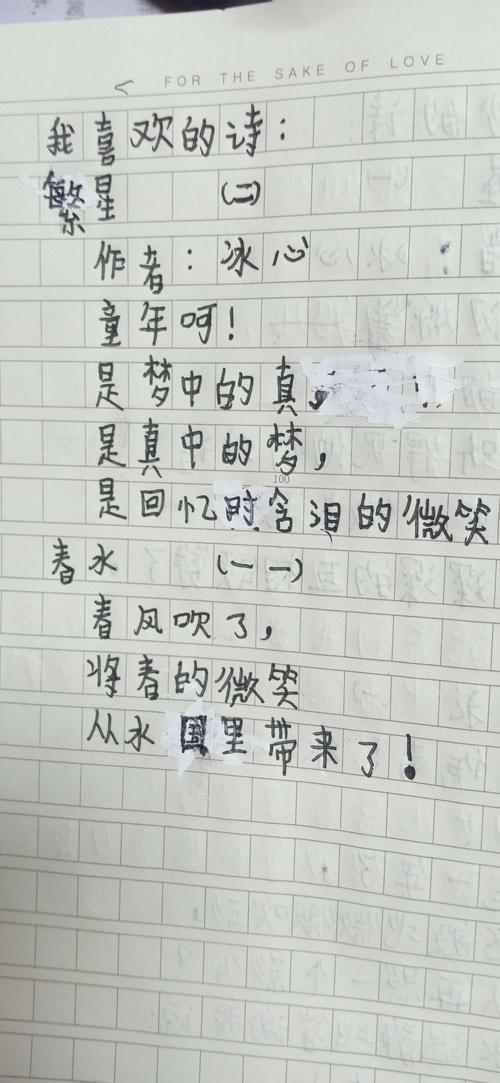 FOR THE SAKE OF LOVE
我喜欢的诗：
繁星 （二）
作者：冰心
童年呵！
是梦中的真，
是真中的梦，
100
是回忆时含泪的微笑
春水 （一一）
春风吹了，
将春的微笑
从水国里带来了！